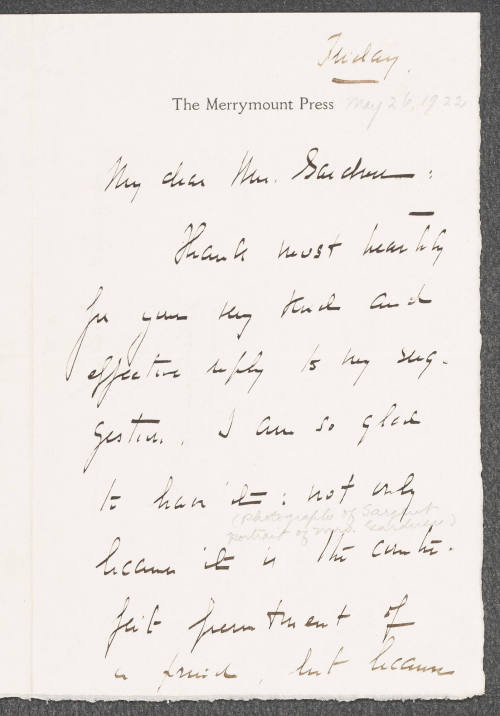 Friday.
The Merrymount Press
May 26, 1922
My dear Mrs. Gardner:
Thank most heartily
for your very kind and
effective reply to my sug-
gestion. I am so glad
to have it: not only
(photographs of Sargent
portrait of Mrs. Gardner)
because it is the counter-
feit presentment of
a friend, but because